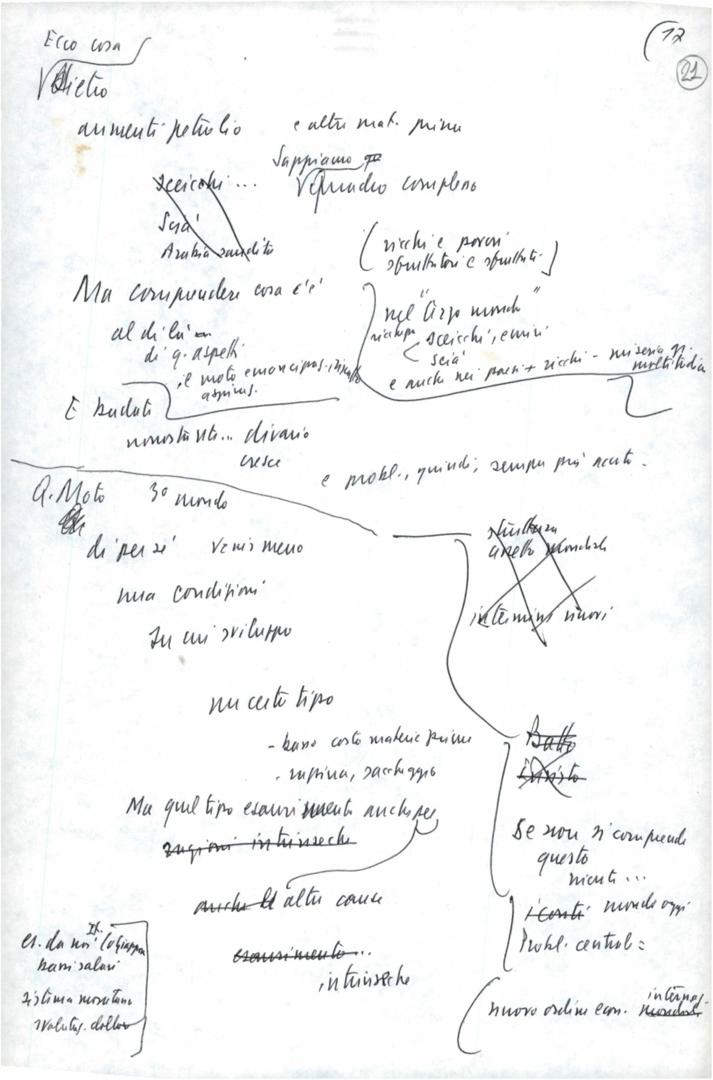 (17
21
Ecco cosa
Dietro
aumenti petrolio e altre mat. prime
Sappiamo
Sceicchi ... Quadro complesso
Scià
Arabia saudita
(ricchi e poveri
sfruttatori e sfruttati)
Ma comprendere cosa c'è
al di là
di q. aspetti
il moto emancipaz. riscatto
nel "terzo mondo"
sceicchi, emiri
scià
e anche nei paesi + ricchi - miseria gr.
moltitudini
E badate
nonostante... divario
cresce
e probl., quindi, sempre più acuto.
Q. Moto 3° mondo
di per sé venir meno
una condizioni
su cui sviluppo
struttura
assetto mondiale
un certo tipo
- basso costo materie prime
- rapina, saccheggio
Ma quel tipo esaurimento anche per
ragioni intrinseche
anche altre cause
esaurimento...
intrinseche
Basso
Se non si comprende
questo
niente...
i conti mondo oggi
Probl. centrale:
nuovo ordine econ. internaz.
mondiale
es. da noi (o Giappone
bassi salari
sistema monetario
svalutaz. dollaro